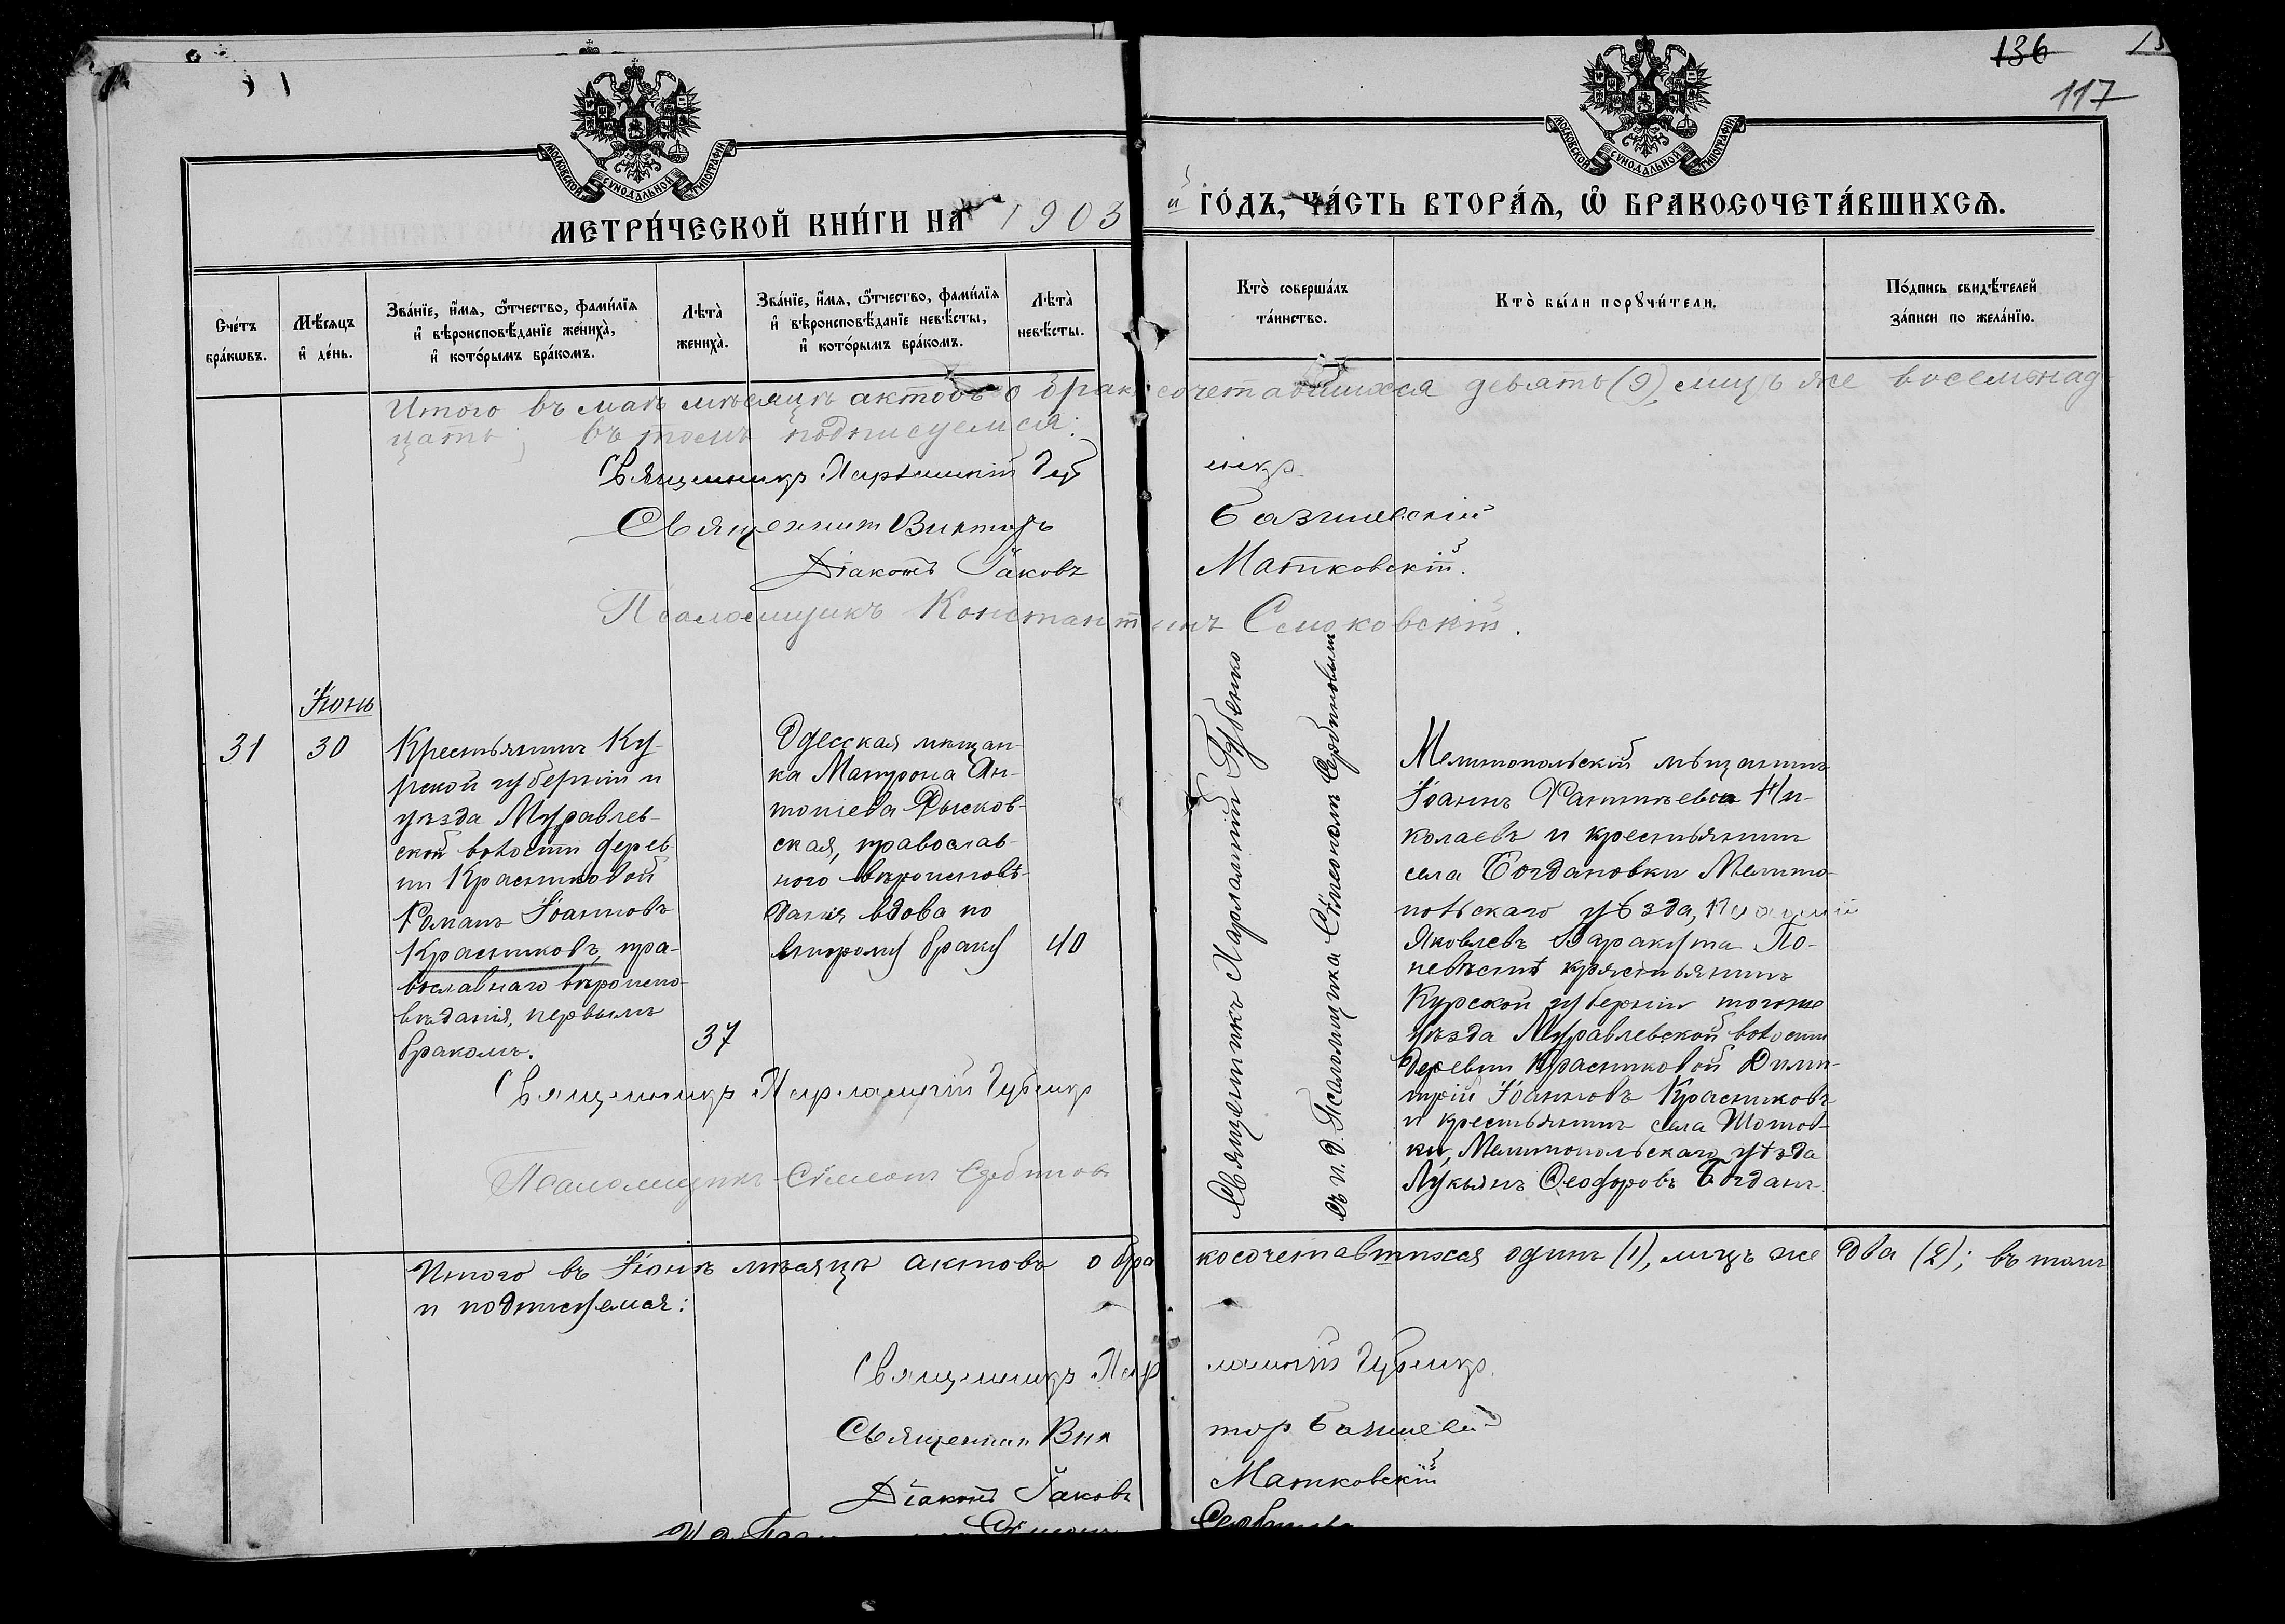 136
117
МОСКОВСКОЙ СѴНОДАЛЬНОЙ ТИПОГРАФІИ
МОСКОВСКОЙ СѴНОДАЛЬНОЙ ТИПОГРАФІИ
МЕТРИ́ЧЕСКОЙ КНИ́ГИ НА 1903
й ГО́ДЪ, ЧА́СТЬ ВТОРА́Я, Ѡ БРАКОСОЧЕТА́ВШИХСЯ.
Сче́тъ бра́кѡвъ.
Мѣ́сяцъ и҆ де́нь.
Зва́нїе, и҆́мя, ѻ҆́тчество, фами́лїя и҆ вѣроисповѣ́данїе женихà, и҆ кото́рымъ бра́комъ.
Лѣта̀ жениха̀.
Зва́нїе, и҆́мя, ѻ҆́тчество, фами́лїя и҆ вѣроисповѣ́данїе невѣ́сты, и҆ кото́рымъ бра́комъ.
Лѣта̀ невѣ́сты.
Кто̀ соверша́лъ та́инство.
Кто̀ бы́ли порꙋчи́тели.
По́дпись свидѣ́телей за́писи по жела́нїю.
Итого въ маѣ мѣсяцѣ актовъ о бракосочетавшихся девять (9), лицъ же восемнад-
цать; въ томъ подписуемся:
Священникъ Харлампій Губенко
Священникъ Викторъ Базилевскій
Діаконъ Іаковъ Матковскій.
Псаломщикъ Константинъ
Іюнь
31
30
Крестьянинъ Ку-
рской губерніи и
уѣзда Муравлев-
ской волости дерев-
ни Красниковой
Романъ Іоанновъ
Красниковъ, пра-
вославнаго вѣроиспо-
вѣданія, первымъ
бракомъ.
37
Одесская мѣщан-
ка Матрона Ан-
тоніева
ская, православ-
ного вѣроисповѣ-
данія вдова по
второму браку
40
Священникъ Харлампій Губенко
съ и. д. Псаломщика Сѵмеономъ Сербиновымъ
Мелитопольскій мѣщанинъ
Іоаннъ Ни-
колаевъ и крестьянинъ
села Богдановки Мелито-
польскаго уѣзда,
Яковлевъ Баракута По-
невѣстѣ крестьянинъ
Курской губерніи тогоже
уѣзда Муравлевской волости
деревни Красниковой Дими-
трій Іоанновъ Красниковъ
и крестьянинъ села Шотов-
ки, Мелитопольскаго уѣзда
Лукьянъ Ѳеодоровъ Богдан
Священникъ Харлампій Губенко
Псаломщикъ Сѵмеонъ Сербиновъ
Итого въ Іюнѣ мѣсяцѣ актовъ о бракосочетавшихся одинъ (1), лицъ же два (2); въ томъ
и подписуемся:
Священникъ Харлампій Губенко
Священникъ Викторъ Базилевскій
Діаконъ Іаковъ Матковскій